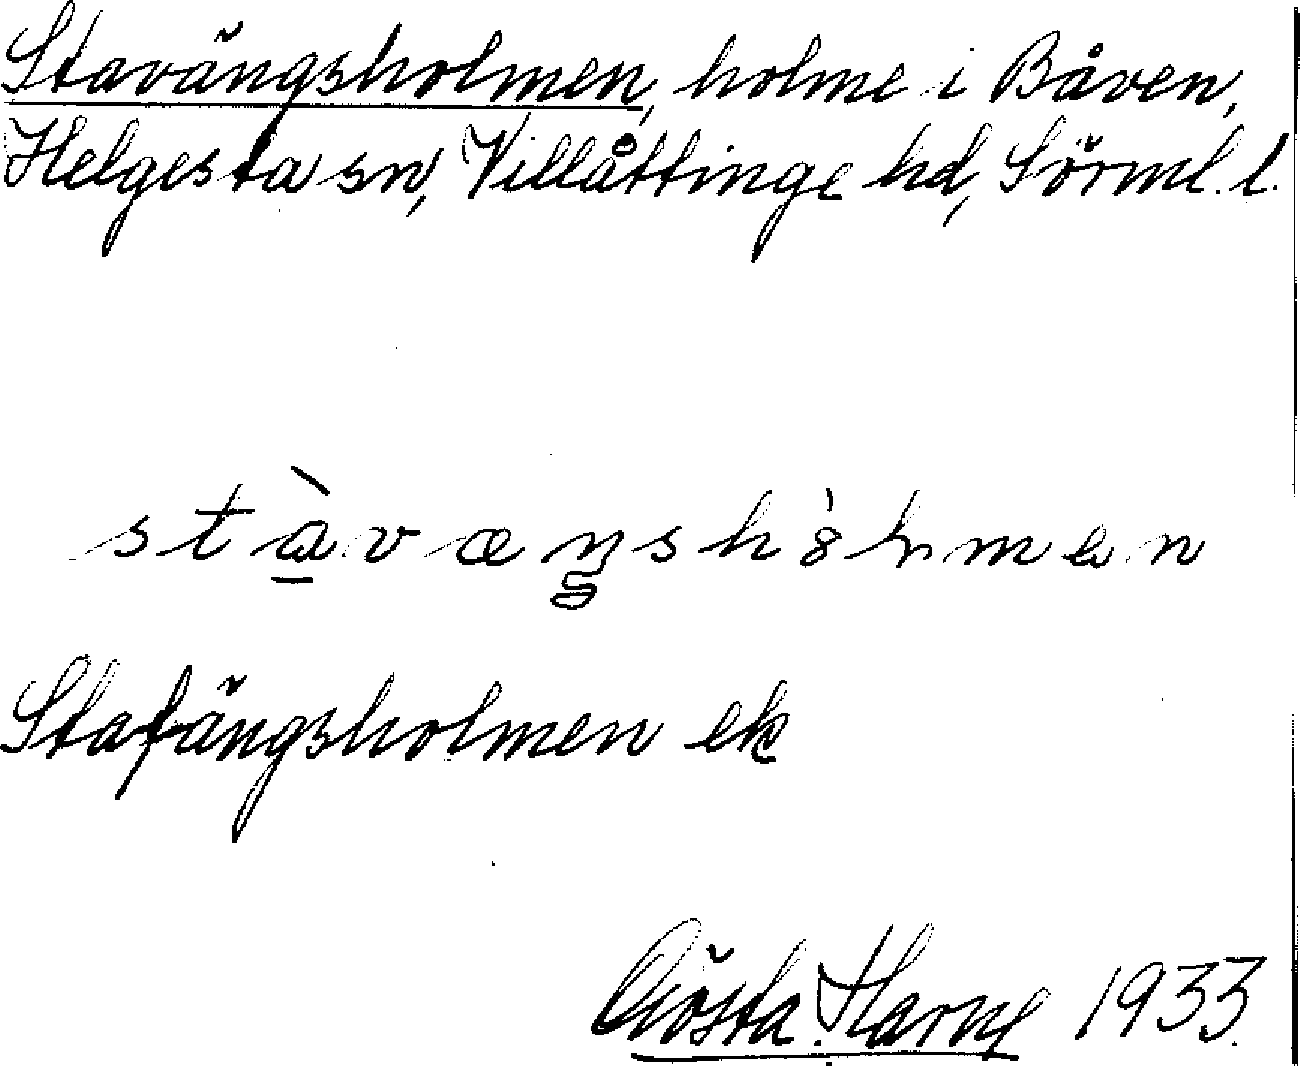 Stavängsholmen, holme i Båven,
Helgesta sn, Villåttinge hd, Sörml. l.
stàvæŋshòlmen
Stafängsholmen ek
Gösta Harne 1933.